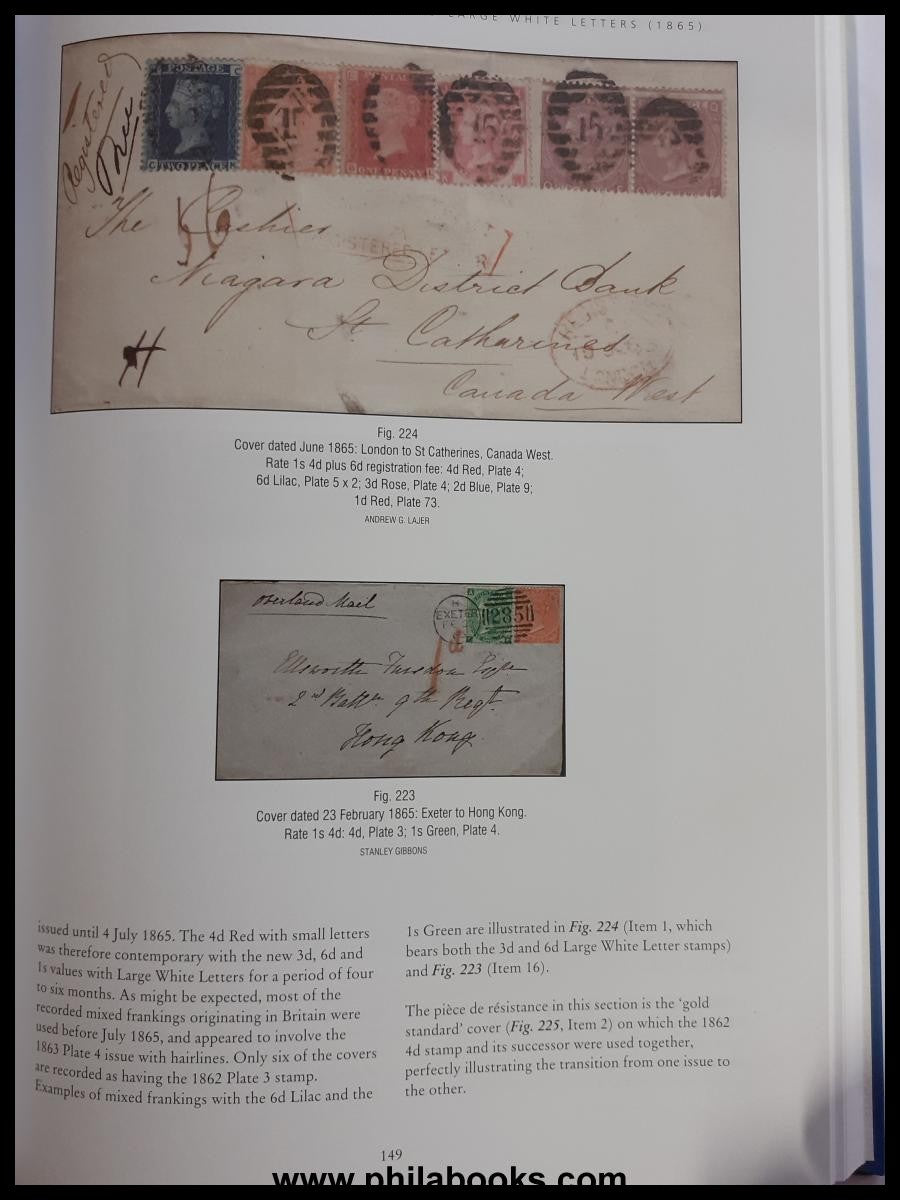 LARGE WHITE LETTERS (1865)
Registered
POSTAGE
TWO PENCE
POSTAGE
ONE PENNY
15
15
The Cashier
Niagara District Bank
St. Catharines
Canada West
H
Fig. 224
Cover dated June 1865: London to St Catherines, Canada West.
Rate 1s 4d plus 6d registration fee: 4d Red, Plate 4;
6d Lilac, Plate 5 x 2; 3d Rose, Plate 4; 2d Blue, Plate 9;
1d Red, Plate 73.
ANDREW G. LAJER
Overland Mail
EXETER
285
1d
Ellsworth Fursdon Esqre
2nd Battn 9th Regt.
Hong Kong.
Fig. 223
Cover dated 23 February 1865: Exeter to Hong Kong.
Rate 1s 4d: 4d, Plate 3; 1s Green, Plate 4.
STANLEY GIBBONS
issued until 4 July 1865. The 4d Red with small letters
was therefore contemporary with the new 3d, 6d and
1s values with Large White Letters for a period of four
to six months. As might be expected, most of the
recorded mixed frankings originating in Britain were
used before July 1865, and appeared to involve the
1863 Plate 4 issue with hairlines. Only six of the covers
are recorded as having the 1862 Plate 3 stamp.
Examples of mixed frankings with the 6d Lilac and the
1s Green are illustrated in Fig. 224 (Item 1, which
bears both the 3d and 6d Large White Letter stamps)
and Fig. 223 (Item 16).
The pièce de résistance in this section is the ‘gold
standard’ cover (Fig. 225, Item 2) on which the 1862
4d stamp and its successor were used together,
perfectly illustrating the transition from one issue to
the other.
149
www.philabooks.com